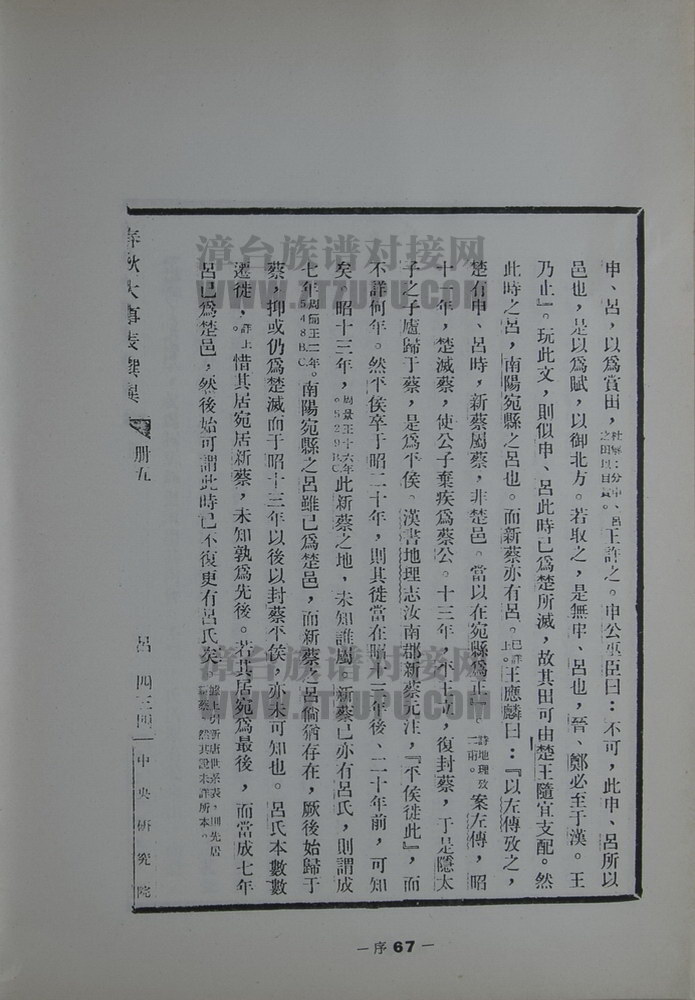 申、呂，以爲賞田，杜解：分申、呂之田以自賞。王許之。申公巫臣曰：不可，此申、呂所以
邑也，是以爲賦，以御北方。若取之，是無申、呂也，晉、鄭必至于漢。王
乃止』。玩此文，則似申、呂此時已爲楚所滅，故其田可由楚王隨宜支配。然
此時之呂，南陽宛縣之呂也。而新蔡亦有呂。已詳上。王應麟曰：『以左傳攷之，
楚有申、呂時，新蔡屬蔡，非楚邑。當以在宛縣爲正』。詩地理攷二甫。案左傳，昭
十一年，楚滅蔡，使公子棄疾爲蔡公。十三年，平王立，復封蔡，于是隱太
子之子廬歸于蔡，是爲平侯。漢書地理志汝南郡新蔡元注，『平侯徙此』，而
不詳何年。然平侯卒于昭二十年，則其徙當在昭十三年後、二十年前，可知
矣。昭十三年，周景王十六年。529 B.C.此新蔡之地，未知誰屬。新蔡已亦有呂氏，則謂成
七年周簡王二年。548 B.C.南陽宛縣之呂雖已爲楚邑，而新蔡之呂倘猶存在，厥後始歸于
蔡，抑或仍爲楚滅而于昭十三年以後以封蔡平侯，亦未可知也。呂氏本數數
遷徙，詳上。惜其居宛居新蔡，未知孰爲先後。若其居宛爲最後，而當成七年
呂已爲楚邑，然後始可謂此時已不復更有呂氏矣。據上引新唐世系表，則先居新蔡。然其說未詳所本。
春秋大事表譔異 册五 呂 四三四 中央研究院
—序 67—
漳台族谱对接网
漳台族谱对接网